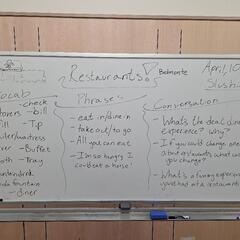 Restaurants! Belmonte
April, 10
Vocab
- check
- bill
- Tip
waiter/waitress
- Buffet
- Tray
soda fountain
- diner
Phrases
- eat in/dine in
- take out/to go
- All you can eat
- I'm so hungry I could eat a horse!
Conversation
- What's the deal dining experience? why?
- If you could change one
about restaurants what would
you change?
- What's a funny experience
you had at a restaurant